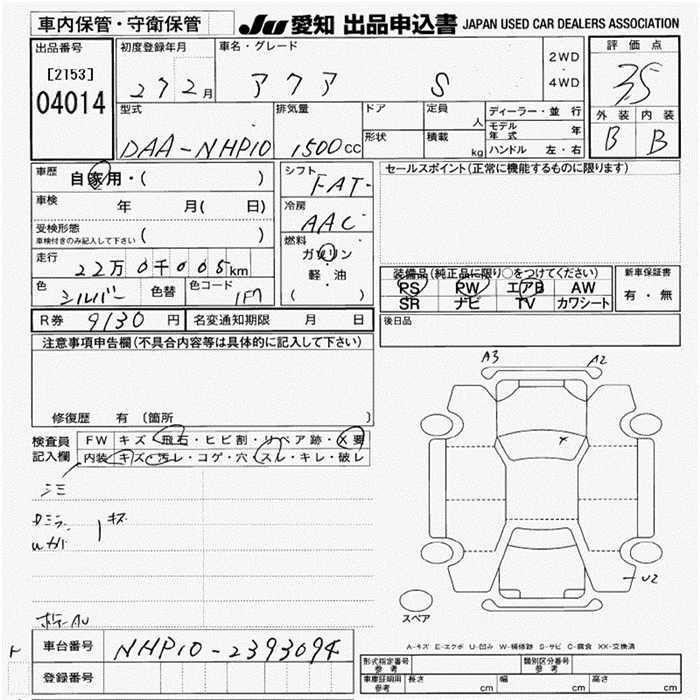 車内保管・守衛保管 JU 愛知 出品申込書 JAPAN USED CAR DEALERS ASSOCIATION
出品番号 初度登録年月 車名・グレード 2WD・4WD 評価点
[2153] 27 2 月 アクア S 35
04014 型式 排気量 ドア 定員 人 ディーラー・並行 外装 内装
モデル年式 年
DAA-NHP10 1500 CC 形状 積載 kg ハンドル 左・右 B B
車歴 自家用・( ) シフト FAT セールスポイント(正常に機能するものに限ります)
車検 年 月( 日) 冷房 AAC
受検形態 車検付きのみ記入して下さい ( ) 燃料 ガソリン
走行 22万0千005km 軽・油 装備品(純正品に限り○をつけてください) 新車保証書
色 シルバー 色替 色コード 1F7 ( ) PS PW エアB AW 有・無
SR ナビ TV カワシート
R券 9130 円 名変通知期限 月 日 後日品
注意事項申告欄(不具合内容等は具体的に記入して下さい)
A3 A2
修復歴 有 (箇所 )
検査員 FW キズ・飛石・ヒビ割・リペア跡・X要
記入欄 内装 キズ・汚レ・コゲ・穴・スレ・キレ・破レ
シミ
キズ
U2
スペア
A-キズ E-エクボ U-凹み W-補修跡 S-サビ C-腐食 XX-交換済
車台番号 NHP10-2393094 形式指定番号 参考 類別区分番号 参考
登録番号 車庫証明用 参考 長さ cm 幅 cm 高さ cm